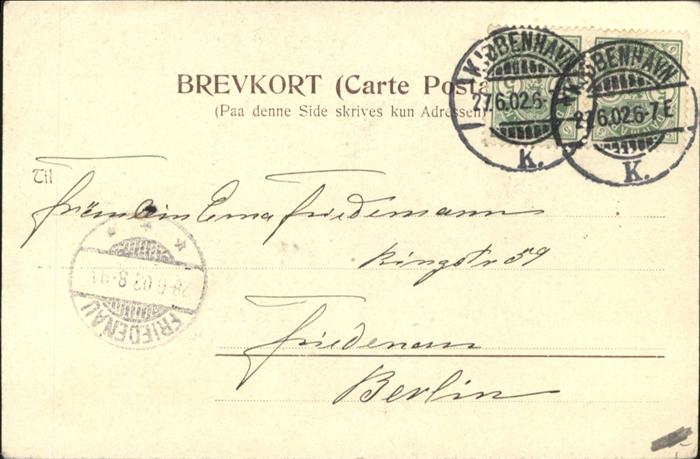 BREVKORT (Carte Posta
(Paa denne Side skrives kun Adressen)
KJØBENHAVN
27.6.02.6-
K.
KJØBENHAVN
27.6.02.6-7E
K.
Til
Fräulein Erna Friedemann
Ringstr 59
Friedenau
Berlin
FRIEDENAU
28.6.02.8-9